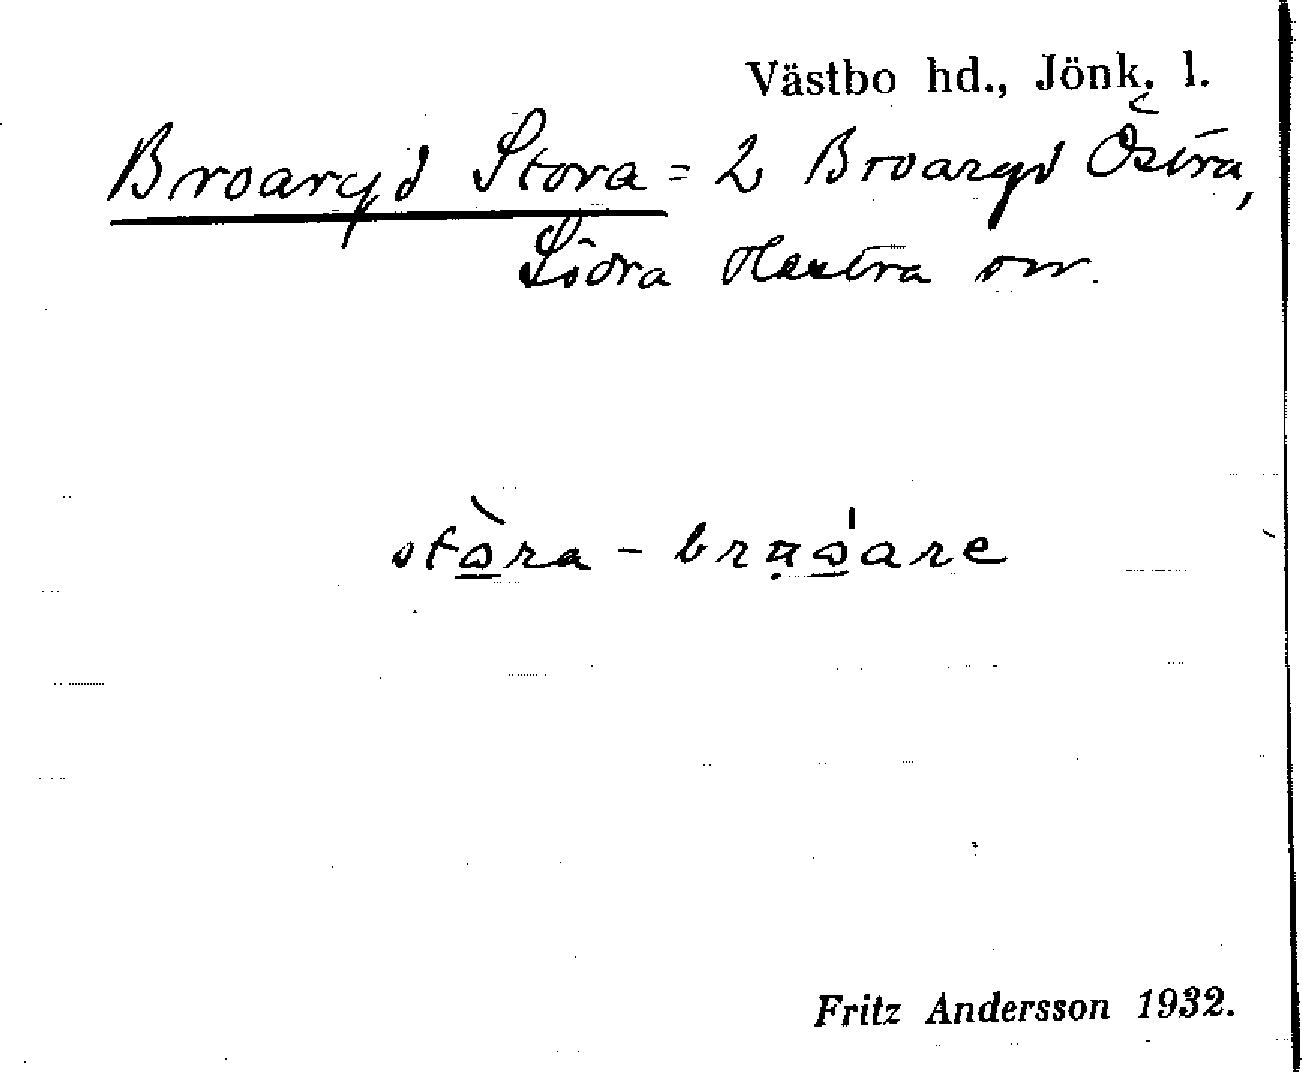 Västbo hd., Jönk. l.
Broaryd Stora = 2 Broaryd Östra,
Södra Hestra sn.
stòra - are
Fritz Andersson 1932.